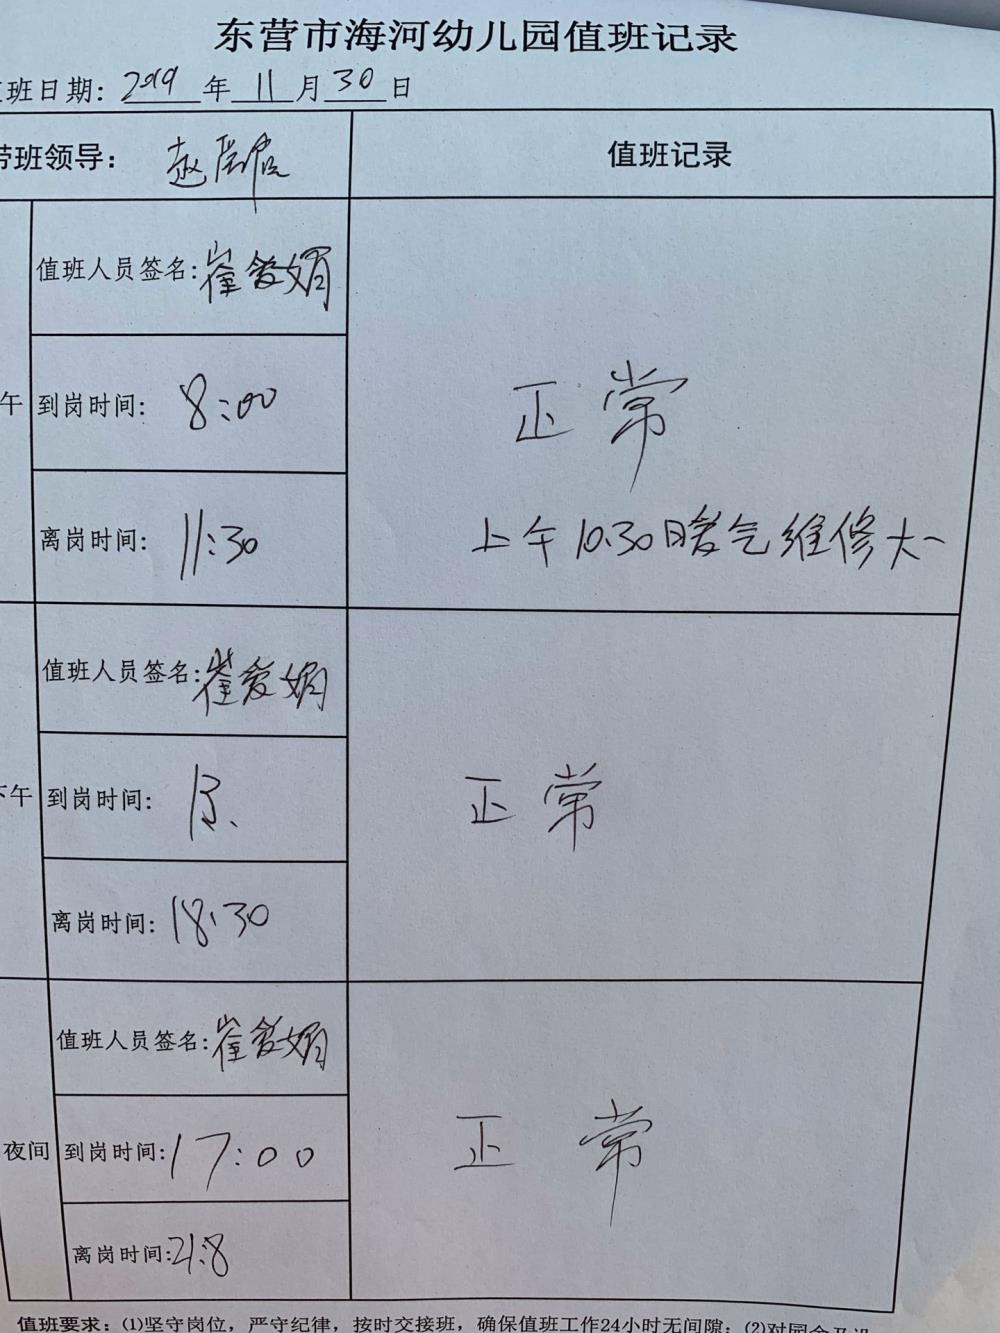 东营市海河幼儿园值班记录
班日期: 2019 年 11 月 30 日
带班领导: 赵
值班记录
午
值班人员签名: 崔爱娟
到岗时间: 8:00
离岗时间: 11:30
正常
上午10:30暖气维修
下午
值班人员签名: 崔爱娟
到岗时间:
离岗时间: 18:30
正常
夜间
值班人员签名: 崔爱娟
到岗时间: 17:00
离岗时间: 21:8
正常
值班要求: (1)坚守岗位，严守纪律，按时交接班，确保值班工作24小时无间隙; (2)对园舍及设